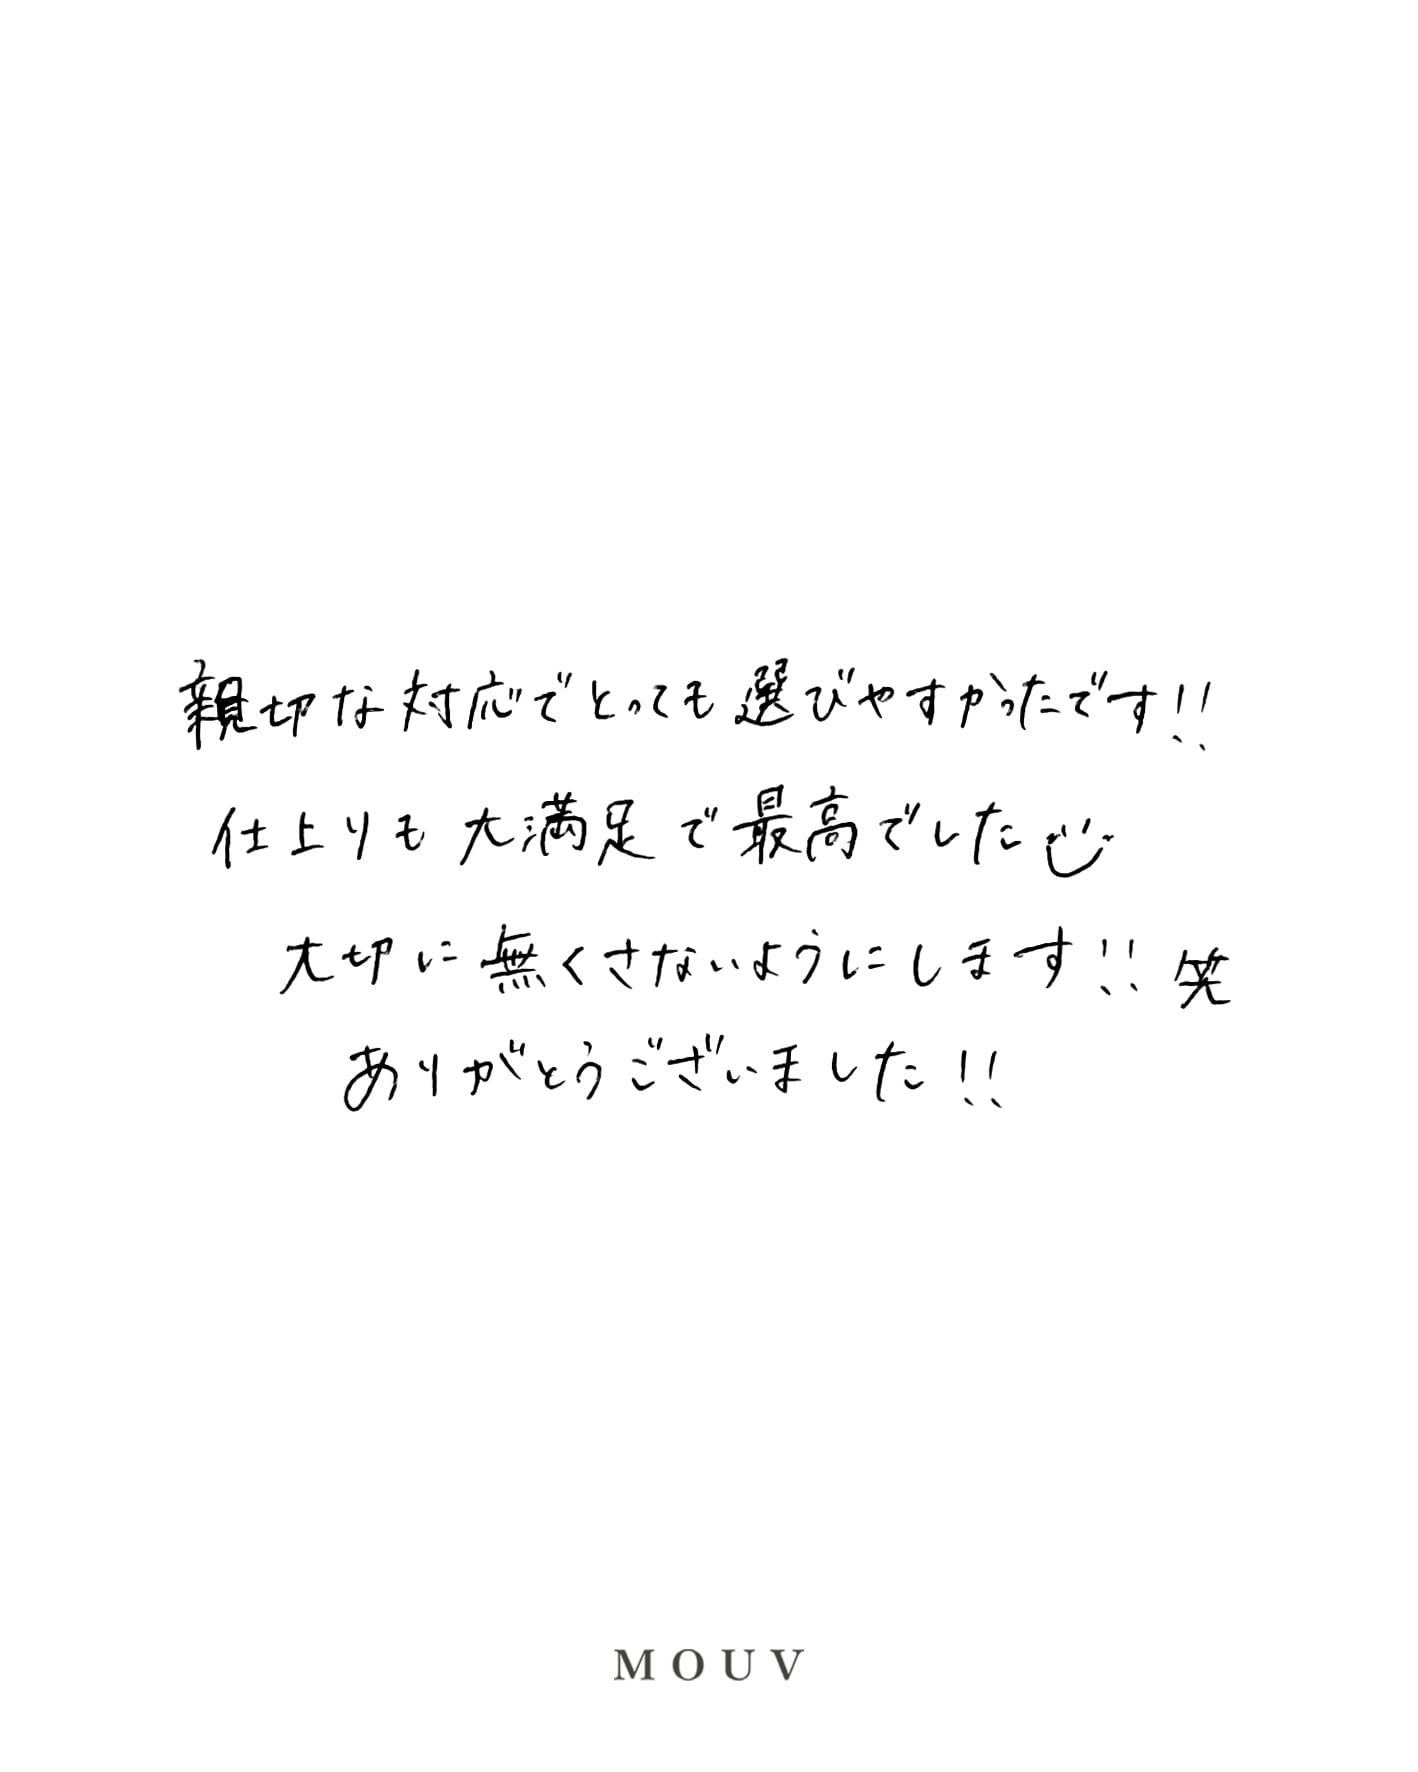 親切な対応でとっても選びやすかったです!!
仕上りも大満足で最高でした
大切に無くさないようにします!! 笑
ありがとうございました!!
MOUV